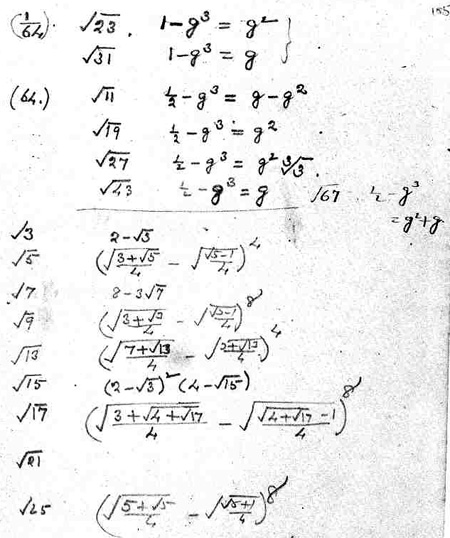 185
(1/64). √23. 1-g³ = g²
√31 1-g³ = g
(64.) √11 ½-g³ = g-g²
√19 ½-g³ = g²
√27 ½-g³ = g² ∛3.
√43 ½-g³ = g √67 ½-g³ = g²+g
√3 2-√3
√5 (√((3+√5)/4) - √((√5-1)/4))⁴
√7 8-3√7
√9 (√((3+√3)/4) - √((√3-1)/4))⁸
√13 (√((7+√13)/4) - √((3+√13)/4))⁴
√15 (2-√3)² (4-√15)
√17 (√((3+√(4+√17))/4) - √((√(4+√17)-1)/4))⁸
√21
√25 (√((5+√5)/4) - √((√5+1)/4))⁸